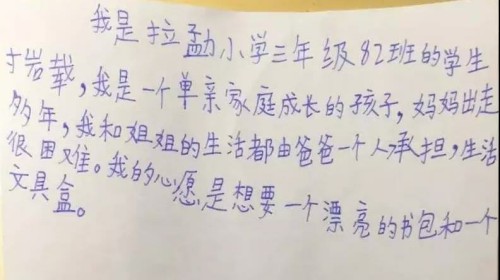 我是拉勐小学三年级82班的学生
才岩载，我是一个单亲家庭成长的孩子，妈妈出走
多年，我和姐姐的生活都由爸爸一个人承担，生活
很困难。我的心愿是想要一个漂亮的书包和一个
文具盒。